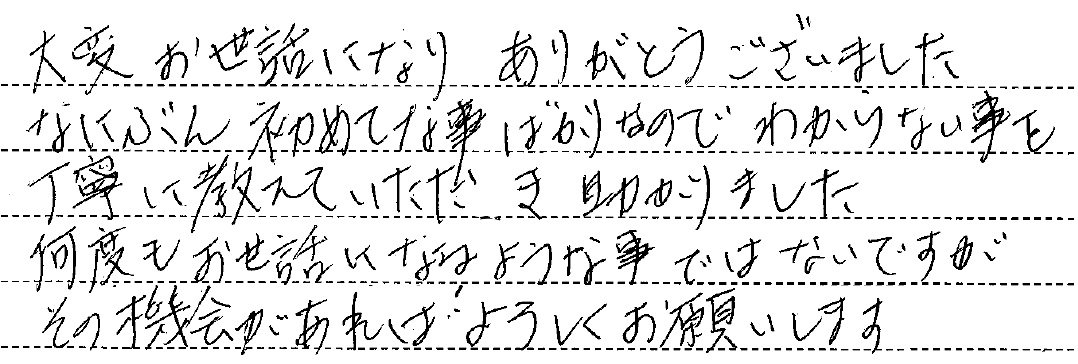 大変お世話になり ありがとうございました
なにぶん初めてな事ばかりなのでわかりない事を
丁寧に教えていただき助かりました
何度もお世話になるような事ではないですが
その機会があればようしくお願いします